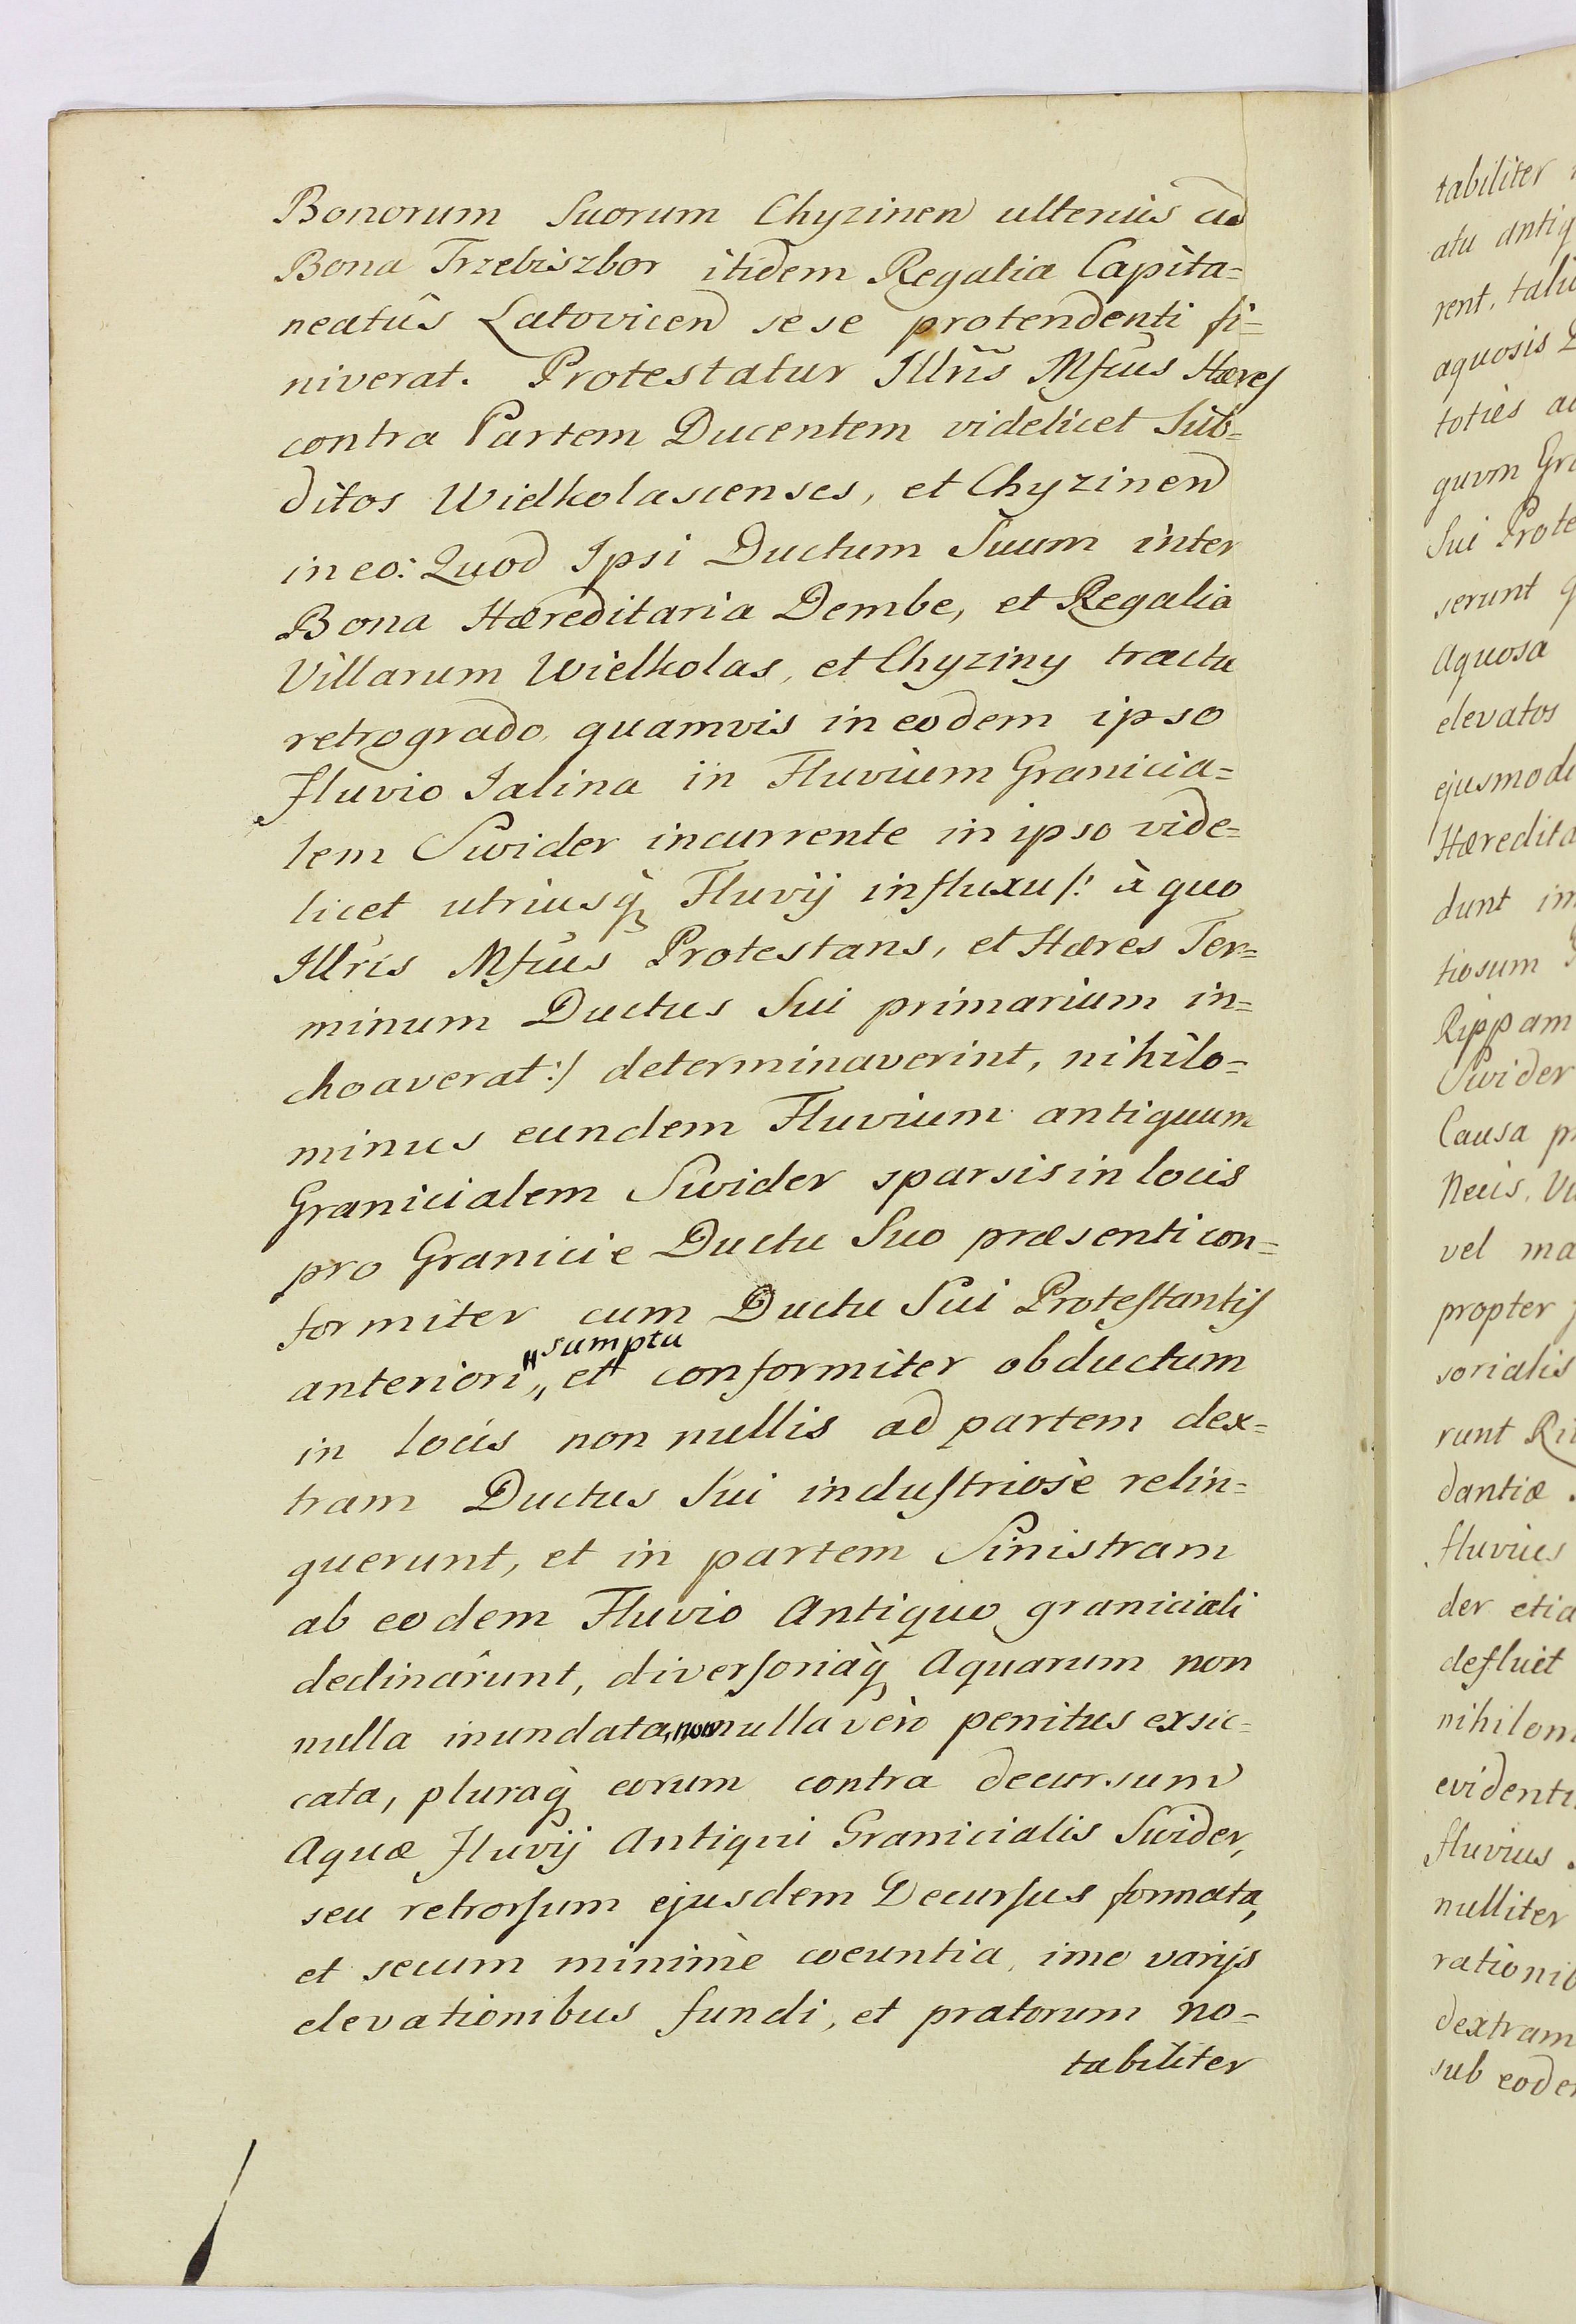 Bonorum Suorum Chyzinen ulteriùs ad
Bona Trzebiszbor itidem Regalia Capita=
neatûs Latovicen sese protendenti fi=
niverat. Protestatur Illris Mfcus Hæres
contra Partem Ducentem videlicet Sub=
ditos Wielkolascenses, et Chyzinen
in eo: Quod Ipsi Ductum Suum inter
Bona Hæreditaria Dembe, et Regalia
Villarum Wielkolas, et Chyziny tractu
retrogrado, quamvis in eodem ipso
Fluvio Jalina in Fluvium Granicia=
lem Swider incurrente in ipso vide=
licet utriusq̀ Fluvij influxu /: à quo
Illris Mfcus Protestans, et Hæres Ter=
minum Ductus Sui primarium in=
choaverat :/ determinaverint, nihilo=
minus eundem Fluvium antiquum
Granicialem Swider sparsis in locis
pro Granicie Ductu Suo præsenti con=
formiter cum Ductu Sui Protestantis
sumptu
anteriori „ et conformiter obductum
in locis non nullis ad partem dex=
tram Ductus Sui industriosè relin=
querunt, et in partem Sinistram
ab eodem Fluvio Antiquo graniciali
declinârunt, diversoriaq̀ Aquarum non
nulla inundata, nonnulla verò penitus exsic=
cata, pluraq̀ eorum contra decursum
Aquæ Fluvij Antiqui Granicialis Swider,
seu retrorsum ejusdem Decursus formata,
et secum minimè coeuntia, imo varijs
elevationibus fundi, et pratorum no=
tabiliter
tabiliter
atu antiq
rent, tali
aquosis
toties a
quum Gra
Sui Prote
serunt q
Aquosa
elevatos
ejusmodi
Hæredita
dunt im
tiosum
Rippam
Swider
Causa p
Necis, Vu
vel ma
propter
sorialis
runt Ri
dantiæ.
fluvius
der etia
defluit
nihilom
evidenti
fluvius.
nulliter
rationib
dextram
sub eode